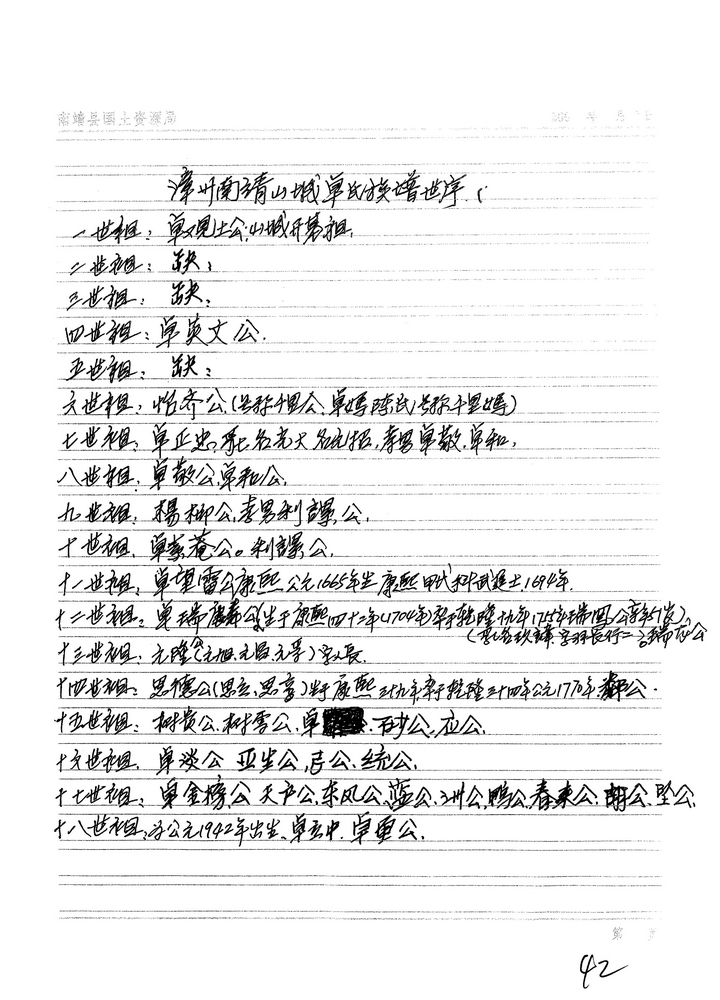 南靖县国土资源局 年 月
漳州南靖山城卓氏族谱世序
一世祖：卓观仕公,山城开基祖,
二世祖：缺；
三世祖：缺；
四世祖：卓英文公.
五世祖：缺；
六世祖：怡齐公(号称千里公、卓妈陈氏号称千里妈)
七世祖：卓正忠, 名元招,孝男卓敬.卓和,
八世祖.卓敬公,卓和公,
九世祖.楊柳公,孝男利謀公,
十世祖.卓 菴公。利謀公,
十一世祖.卓望雷公康熙公元1665年生康熙甲戌科武進士,1694年.
十二世祖.卓瑞 公(生于康熙四十二年(1704年)卒于乾隆十九年1755年 公享年51岁)
十三世祖.元隆公(元旭.元昌.元享)字 長.
十四世祖：思德公(思立、思亨)生于康熙三十九年.卒于乾隆三十四年公元1770年 公.
十五世祖：树贵公,树雪公,卓 .石砂公,应公.
十六世祖.卓淡公 亚生公, 公、统公.
十七世祖：卓金榜公 天户公、东风公、蓝公、洲公、鸭公、春東公、朝公、坠公,
十八世祖: 公元1942年出生、卓 中.卓更公,
第 页
42